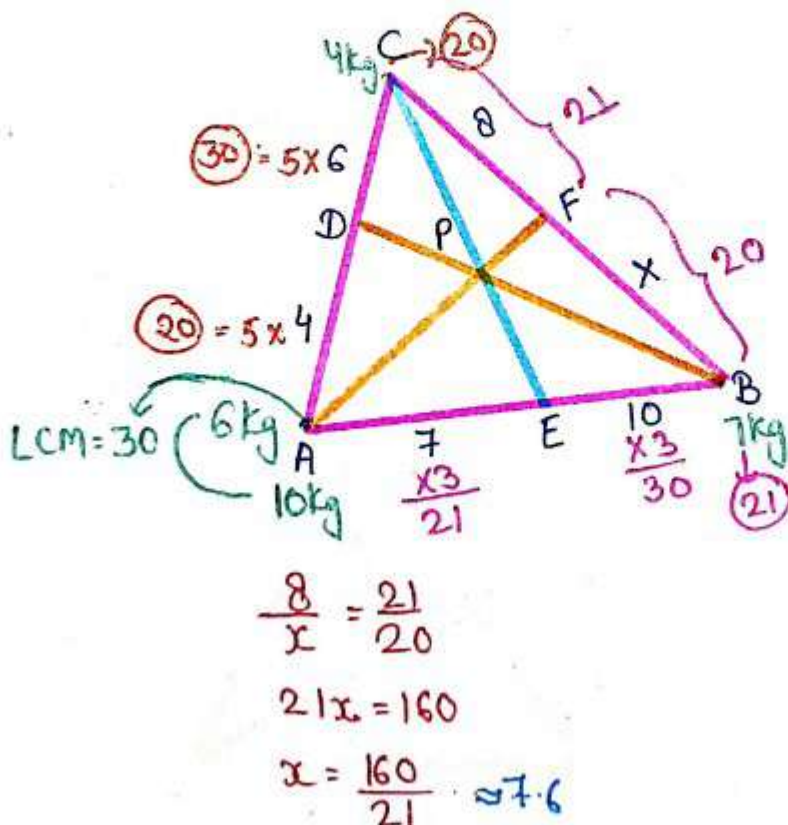 C → 20
4kg
8
21
30 = 5×6
D
P
F
X
20
20 = 5×4
LCM = 30
6kg
A
10kg
7
×3
21
E
10
×3
30
B
7kg
21
8/x = 21/20
21x = 160
x = 160/21 ≈ 7.6